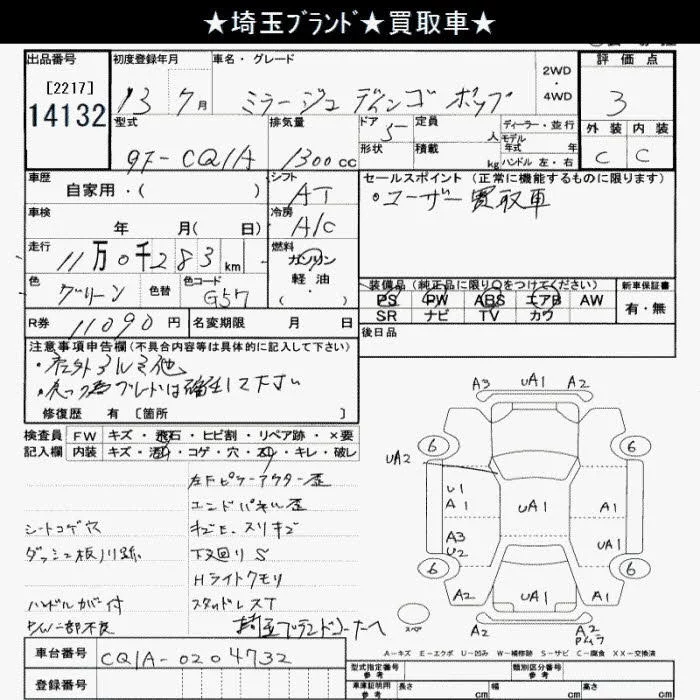 ★埼玉ブランド★買取車★
出品番号 初度登録年月 車名・グレード 2WD・4WD 評価点
[2217] 13 7月 ミラージュ ディンゴ ポップ 3
14132
型式 排気量 ドア 5 定員 人 ディーラー・並行 外装 内装
形状 積載 kg モデル年式 年 ハンドル 左・右
GF-CQ1A 1300cc C C
車歴 シフト セールスポイント (正常に機能するものに限ります)
自家用・( ) AT ・ユーザー買取車
車検 冷房
年 月( 日) A/C
走行 燃料
11万0千283km ガソリン
軽油
・( )
色 色替 色コード
グリーン G57
装備品 (純正品に限り○をつけてください) 新車保証書
PS PW ABS エアB AW 有・無
SR ナビ TV カワ
R券 11090円 名変期限 月 日 後日品
注意事項申告欄 (不具合内容等は具体的に記入して下さい)
修復歴 有 [箇所 ]
検査員 FW キズ・飛石・ヒビ割・リペア跡・×要
記入欄 内装 キズ・汚・コゲ・穴・スリ・キレ・破レ
エンドパネル歪
シートコゲ穴
ダッシュ板ハリ跡
下廻りS
Hライトクモリ
ハンドルカバー付 スタッドレスT
P/W一部不良 埼玉ブランドコーナーへ
A3 UA1 A2
6 6
UA2
U1 A1 UA1 A1
A3 U2 UA1
6 6
A2 UA1 A2
スペア A2 A2
A-キズ E-エクボ U-凹み W-補修跡 S-サビ C-腐食 XX-交換済
車台番号 CQ1A-0204732
登録番号
型式指定番号 参考 類別区分番号 参考
車庫証明用 参考 長さ cm 幅 cm 高さ cm